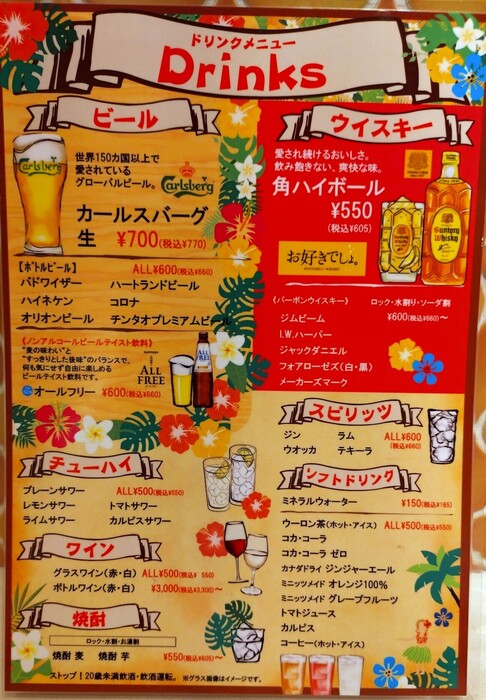 ドリンクメニュー
Drinks
ビール
Carlsberg
世界150カ国以上で
愛されている
グローバルビール。
Carlsberg
カールスバーグ
生 ¥700(税込¥770)
【ボトルビール】 ALL¥600(税込¥660)
バドワイザー ハートランドビール
ハイネケン コロナ
オリオンビール チンタオプレミアムビール
《ノンアルコールビールテイスト飲料》
"麦の味わい"と
"すっきりとした後味"のバランスで、
何も気にせず自由に楽しめる
ビールテイスト飲料です。
ALL FREE
ALL FREE
オールフリー ¥600(税込¥660)
ウイスキー
愛され続けるおいしさ。
飲み飽きない、爽快な味。
角ハイボール
¥550
(税込¥605)
Suntory
Whisky
お好きでしょ。
《バーボンウイスキー》 ロック・水割り・ソーダ割
ジムビーム ¥600(税込¥660)〜
I.W.ハーパー
ジャックダニエル
フォアローゼズ(白・黒)
メーカーズマーク
スピリッツ
ジン ラム ALL¥600
ウオッカ テキーラ (税込¥660)
チューハイ
プレーンサワー ALL¥500(税込¥550)
レモンサワー トマトサワー
ライムサワー カルピスサワー
ソフトドリンク
ミネラルウォーター ¥150(税込¥165)
ウーロン茶(ホット・アイス) ALL¥500(税込¥550)
コカ・コーラ
コカ・コーラ ゼロ
カナダドライ ジンジャーエール
ミニッツメイド オレンジ100%
ミニッツメイド グレープフルーツ
トマトジュース
カルピス
コーヒー(ホット・アイス)
ワイン
グラスワイン(赤・白) ALL¥500(税込¥550)
ボトルワイン(赤・白) ¥3,000(税込¥3,300)〜
焼酎
ロック・水割・お湯割
焼酎 麦 焼酎 芋 ¥550(税込¥605)〜
ストップ!20歳未満飲酒・飲酒運転。 ※グラス画像はイメージです。